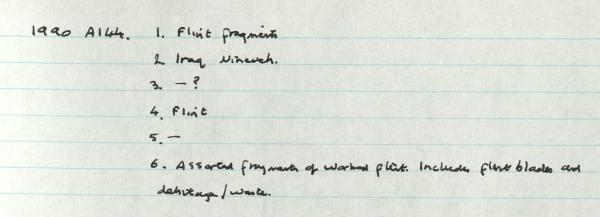 1990 A144. 1. Flint fragments
2. Iraq Nineveh.
3. – ?
4. Flint
5. –
6. Assorted fragments of worked flint. Includes flint blades and
debitage / waste.